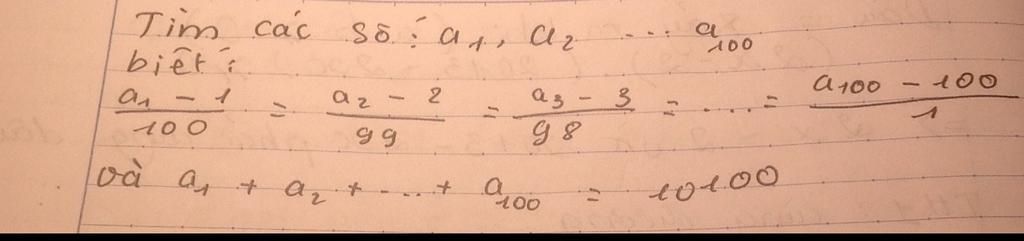 Tìm các số: a₁, a₂ ... a₁₀₀
biết:
(a₁ - 1)/100 = (a₂ - 2)/99 = (a₃ - 3)/98 = .... = (a₁₀₀ - 100)/1
và a₁ + a₂ + ... + a₁₀₀ = 10100